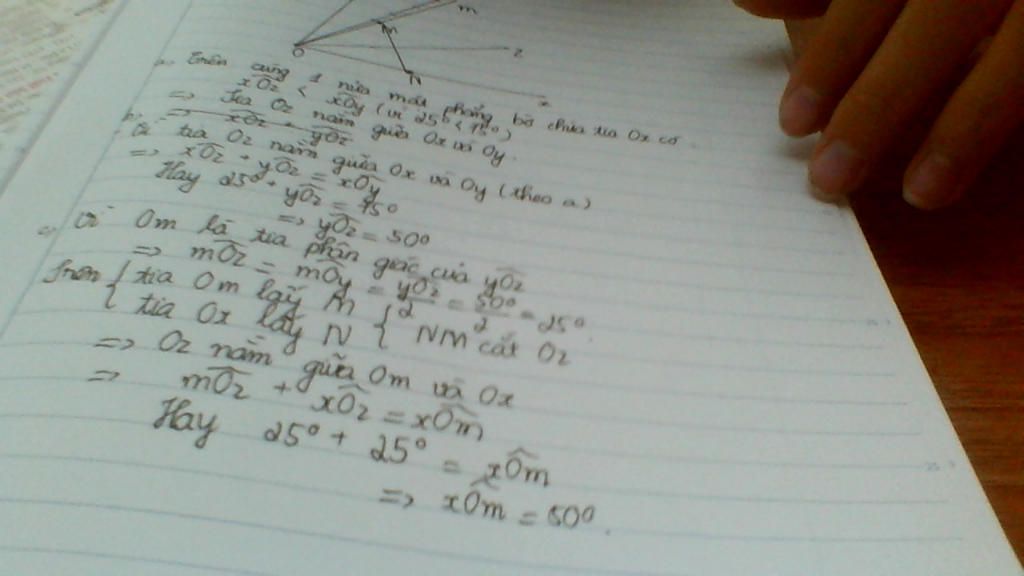 m
M
O
z
N
x
a, Trên cùng 1 nửa mặt phẳng bờ chứa tia Ox có
xOz < xOy (vì 25° < 75°)
=> Tia Oz nằm giữa Ox và Oy.
b, => xOz + yOz
Vì tia Oz nằm giữa Ox và Oy (theo a)
=> xOz + yOz = xOy
Hay 25° + yOz = 75°
=> yOz = 50°
c, Vì Om là tia phân giác của yOz
=> mOz = mOy = yOz/2 = 50°/2 = 25°
Trên { tia Om lấy M { NM cắt Oz
tia Ox lấy N
=> Oz nằm giữa Om và Ox
=> mOz + xOz = xOm
Hay 25° + 25° = xOm
=> xOm = 50°.